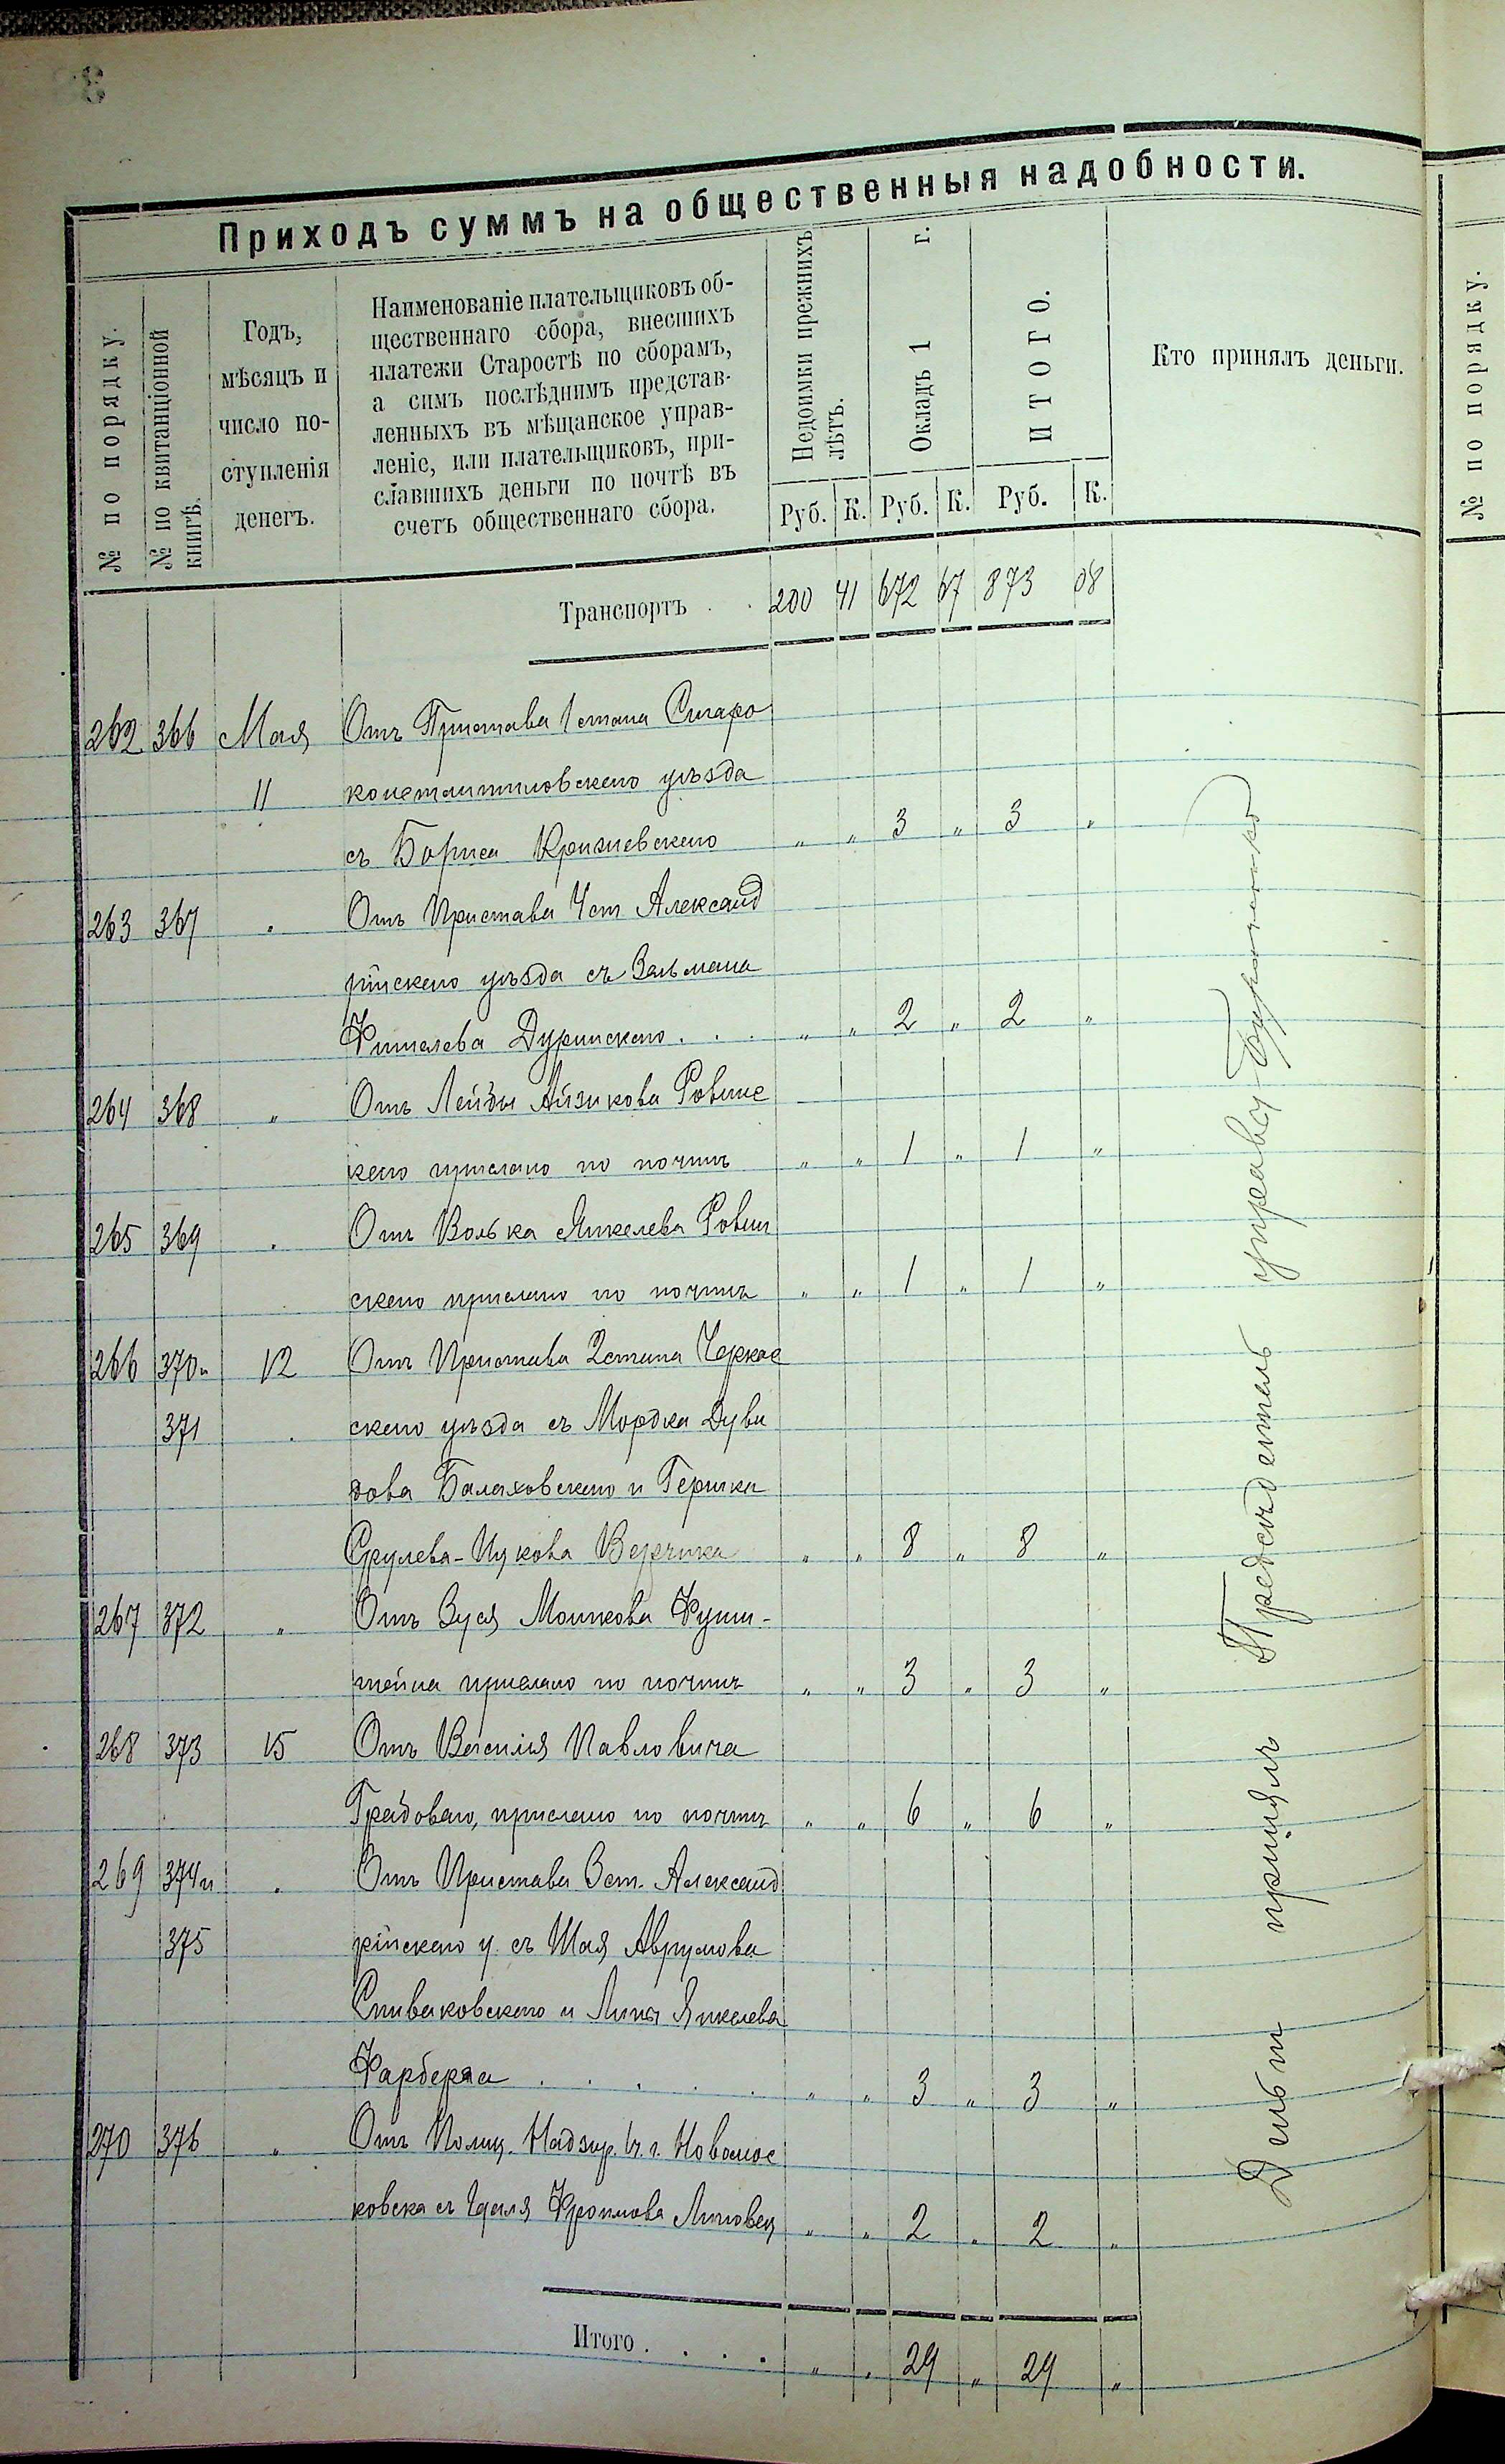 Приходъ суммъ на общественныя надобности.
№ по порядку.
№ по квитанціонной книгѣ.
Годъ,
мѣсяцъ и
число по-
ступленія
денегъ.
Наименованіе плательщиковъ об-
щественнаго сбора, внесшихъ
платежи Старостѣ по сборамъ,
а симъ послѣднимъ представ-
ленныхъ въ мѣщанское управ-
леніе, или плательщиковъ, при-
славшихъ деньги по почтѣ въ
счетъ общественнаго сбора.
Недоимки прежнихъ лѣтъ.
Окладъ 1 г.
ИТОГО.
Кто принялъ деньги.
Руб. К. Руб. К. Руб. К.
Транспортъ . . 200 41 672 67 873 08
262 366 Мая Отъ Пристава 1 стана Старо
11 константиновскаго уѣзда
съ Бориса Кришевскаго " " 3 " 3 "
263 367 " Отъ Пристава 4 ст. Александ
рійскаго уѣзда съ Зальмана
Фишелева Дуринскаго . . . " " 2 " 2 "
264 368 " Отъ Лейбы Айзикова Ровинс
каго прислано по почтѣ " " 1 " 1 "
265 369 " Отъ Волька Янкелева Ровин
скаго прислано по почтѣ " " 1 " 1 "
266 370 и 12 Отъ Пристава 2 стана Черкас
371 . скаго уѣзда съ Мордка Дуви
дова Балаховскаго и Гершка
Срулева-Ицкова Верника " " 8 " 8 "
267 372 " Отъ Зуся Мошкова Фунш-
тейна прислано по почтѣ " " 3 " 3 "
268 373 15 Отъ Василія Павловича
Градоваго, прислано по почтѣ " " 6 " 6 "
269 374 и " Отъ Пристава 3 ст. Александ
375 рійскаго у. съ Шая Аврумова
Спиваковскаго и Янкелева
Фарбера . . . . . " " 3 " 3 "
270 376 " Отъ Полиц. Надзир. 1 ч. г. Новомос
ковска съ Фроимова Липовец " " 2 " 2 "
Итого . . . . " " 29 " 29 "
Деньги принялъ Предсѣдатель управы
№ по порядку.